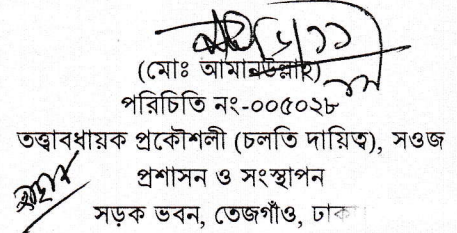 (মোঃ আমানউল্লাহ)
পরিচিতি নং-০০৫০২৮
তত্ত্বাবধায়ক প্রকৌশলী (চলতি দায়িত্ব), সওজ
প্রশাসন ও সংস্থাপন
সড়ক ভবন, তেজগাঁও, ঢাকা